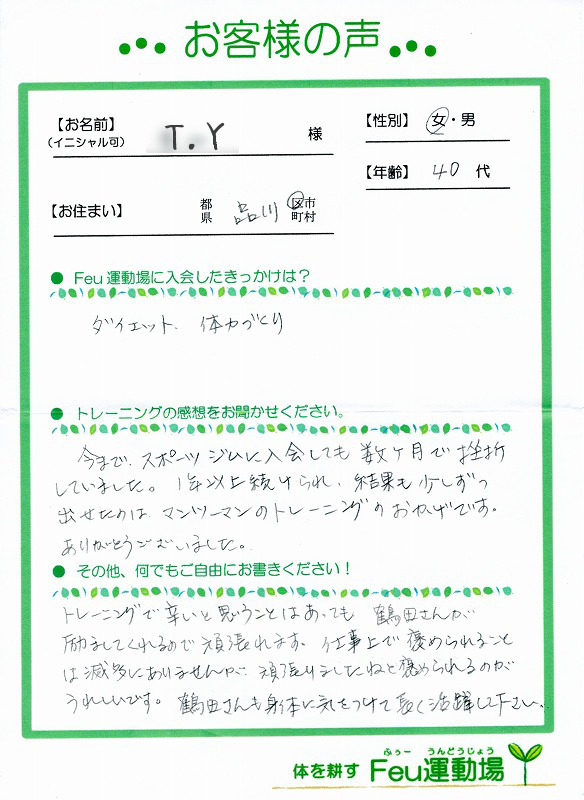 お客様の声
【お名前】
(イニシャル可)
T.Y 様
【性別】 女・男
【年齢】 40 代
【お住まい】 都県 品川 区市町村
● Feu運動場に入会したきっかけは？
ダイエット、体力づくり
● トレーニングの感想をお聞かせください。
今まで、スポーツジムに入会しても数ヶ月で挫折
していました。1年以上続けられ、結果も少しずつ
出せたのは、マンツーマンのトレーニングのおかげです。
ありがとうございました。
● その他、何でもご自由にお書きください！
トレーニングで辛いと思うことはあっても 鶴田さんが
励ましてくれるので頑張れます。仕事上で褒められること
は滅多にありませんが、頑張りましたねと褒められるのが
うれしいです。鶴田さんも身体に気をつけて長く活躍して下さい。
ふぅー うんどうじょう
体を耕す Feu運動場